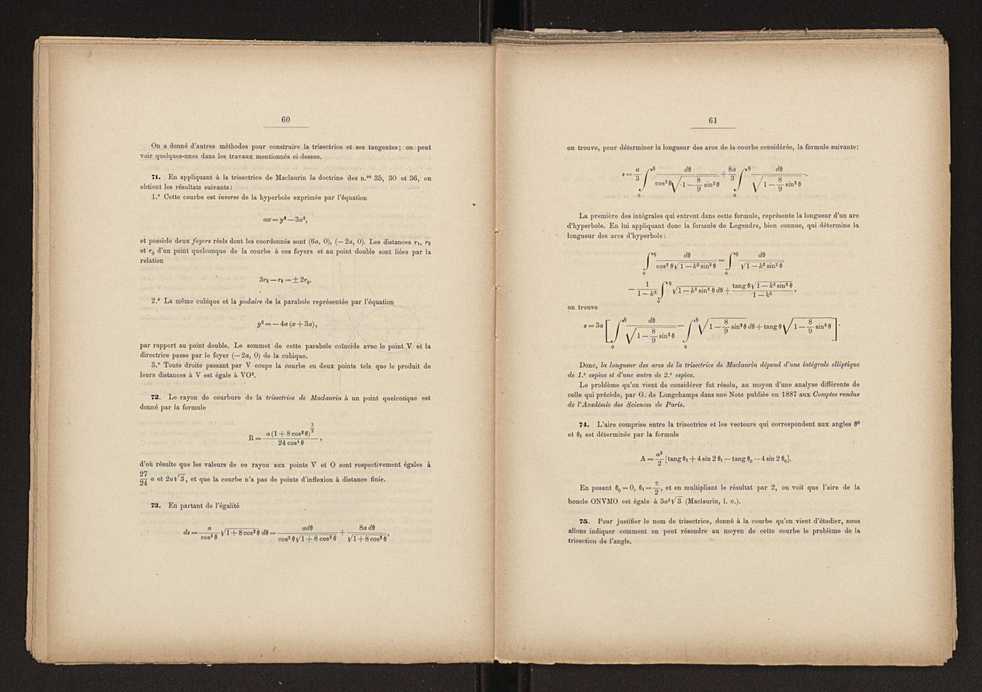 60
On a donné d'autres méthodes pour construire la trisectrice et ses tangentes; on peut
voir quelques-unes dans les travaux mentionnés ci-dessus.
71. En appliquant à la trisectrice de Maclaurin la doctrine des n.os 35, 30 et 36, on
obtient les résultats suivants:
1.º Cette courbe est inverse de la hyperbole exprimée par l'équation
ax = y² — 3x²,
et possède deux foyers réels dont les coordonnés sont (6a, 0), (— 2a, 0). Les distances r₁, r₂
et r₃ d'un point quelconque de la courbe à ces foyers et au point double sont liées par la
relation
3r₂ — r₁ = ± 2r₃.
2.º La même cubique et la podaire de la parabole représentée par l'équation
y² = — 4a (x + 3a),
par rapport au point double. Le sommet de cette parabole coïncide avec le point V et la
directrice passe par le foyer (— 2a, 0) de la cubique.
3.º Toute droite passant par V coupe la courbe en deux points tels que le produit de
leurs distances à V est égale à VO².
72. Le rayon de courbure de la trisectrice de Maclaurin à un point quelconque est
donné par la formule
R = a (1 + 8 cos² θ)^{3/2} / 24 cos⁴ θ ,
d'où résulte que les valeurs de ce rayon aux points V et O sont respectivement égales à
27/24 a et 2a√3, et que la courbe n'a pas de points d'inflexion à distance finie.
73. En partant de l'égalité
ds = a/cos² θ √1 + 8 cos² θ dθ = adθ / cos² θ √1 + 8 cos² θ + 8a dθ / √1 + 8 cos² θ ,
61
on trouve, pour déterminer la longueur des arcs de la courbe considérée, la formule suivante:
s = a/3 ∫₀^θ dθ / cos² θ √(1 — 8/9 sin² θ) + 8a/3 ∫₀^θ dθ / √(1 — 8/9 sin² θ) .
La première des intégrales qui entrent dans cette formule, représente la longueur d'un arc
d'hyperbole. En lui appliquant donc la formule de Legendre, bien connue, qui détermine la
longueur des arcs d'hyperbole:
∫₀^θ dθ / cos² θ √1 — k² sin² θ = ∫₀^θ dθ / √1 — k² sin² θ
— 1/(1 — k²) ∫₀^θ √1 — k² sin² θ dθ + tang θ √1 — k² sin² θ / (1 — k²) ,
on trouve
s = 3a [ ∫₀^θ dθ / √(1 — 8/9 sin² θ) — ∫₀^θ √(1 — 8/9 sin² θ) dθ + tang θ √(1 — 8/9 sin² θ) ] .
Donc, la longueur des arcs de la trisectrice de Maclaurin dépend d'une intégrale elliptique
de 1.e espèce et d'une autre de 2.e espèce.
Le problème qu'on vient de considérer fut résolu, au moyen d'une analyse différente de
celle qui précède, par G. de Longchamps dans une Note publiée en 1887 aux Comptes rendus
de l'Académie des Sciences de Paris.
74. L'aire comprise entre la trisectrice et les vecteurs qui correspondent aux angles θ₀
et θ₁ est déterminée par la formule
A = a²/2 [tang θ₁ + 4 sin 2 θ₁ — tang θ₀ — 4 sin 2 θ₀].
En posant θ₀ = 0, θ₁ = π/2, et en multipliant le résultat par 2, on voit que l'aire de la
boucle ONVMO est égale à 3a² √3 (Maclaurin, l. c.).
75. Pour justifier le nom de trisectrice, donné à la courbe qu'on vient d'étudier, nous
allons indiquer comment on peut résoudre au moyen de cette courbe le problème de la
trisection de l'angle.